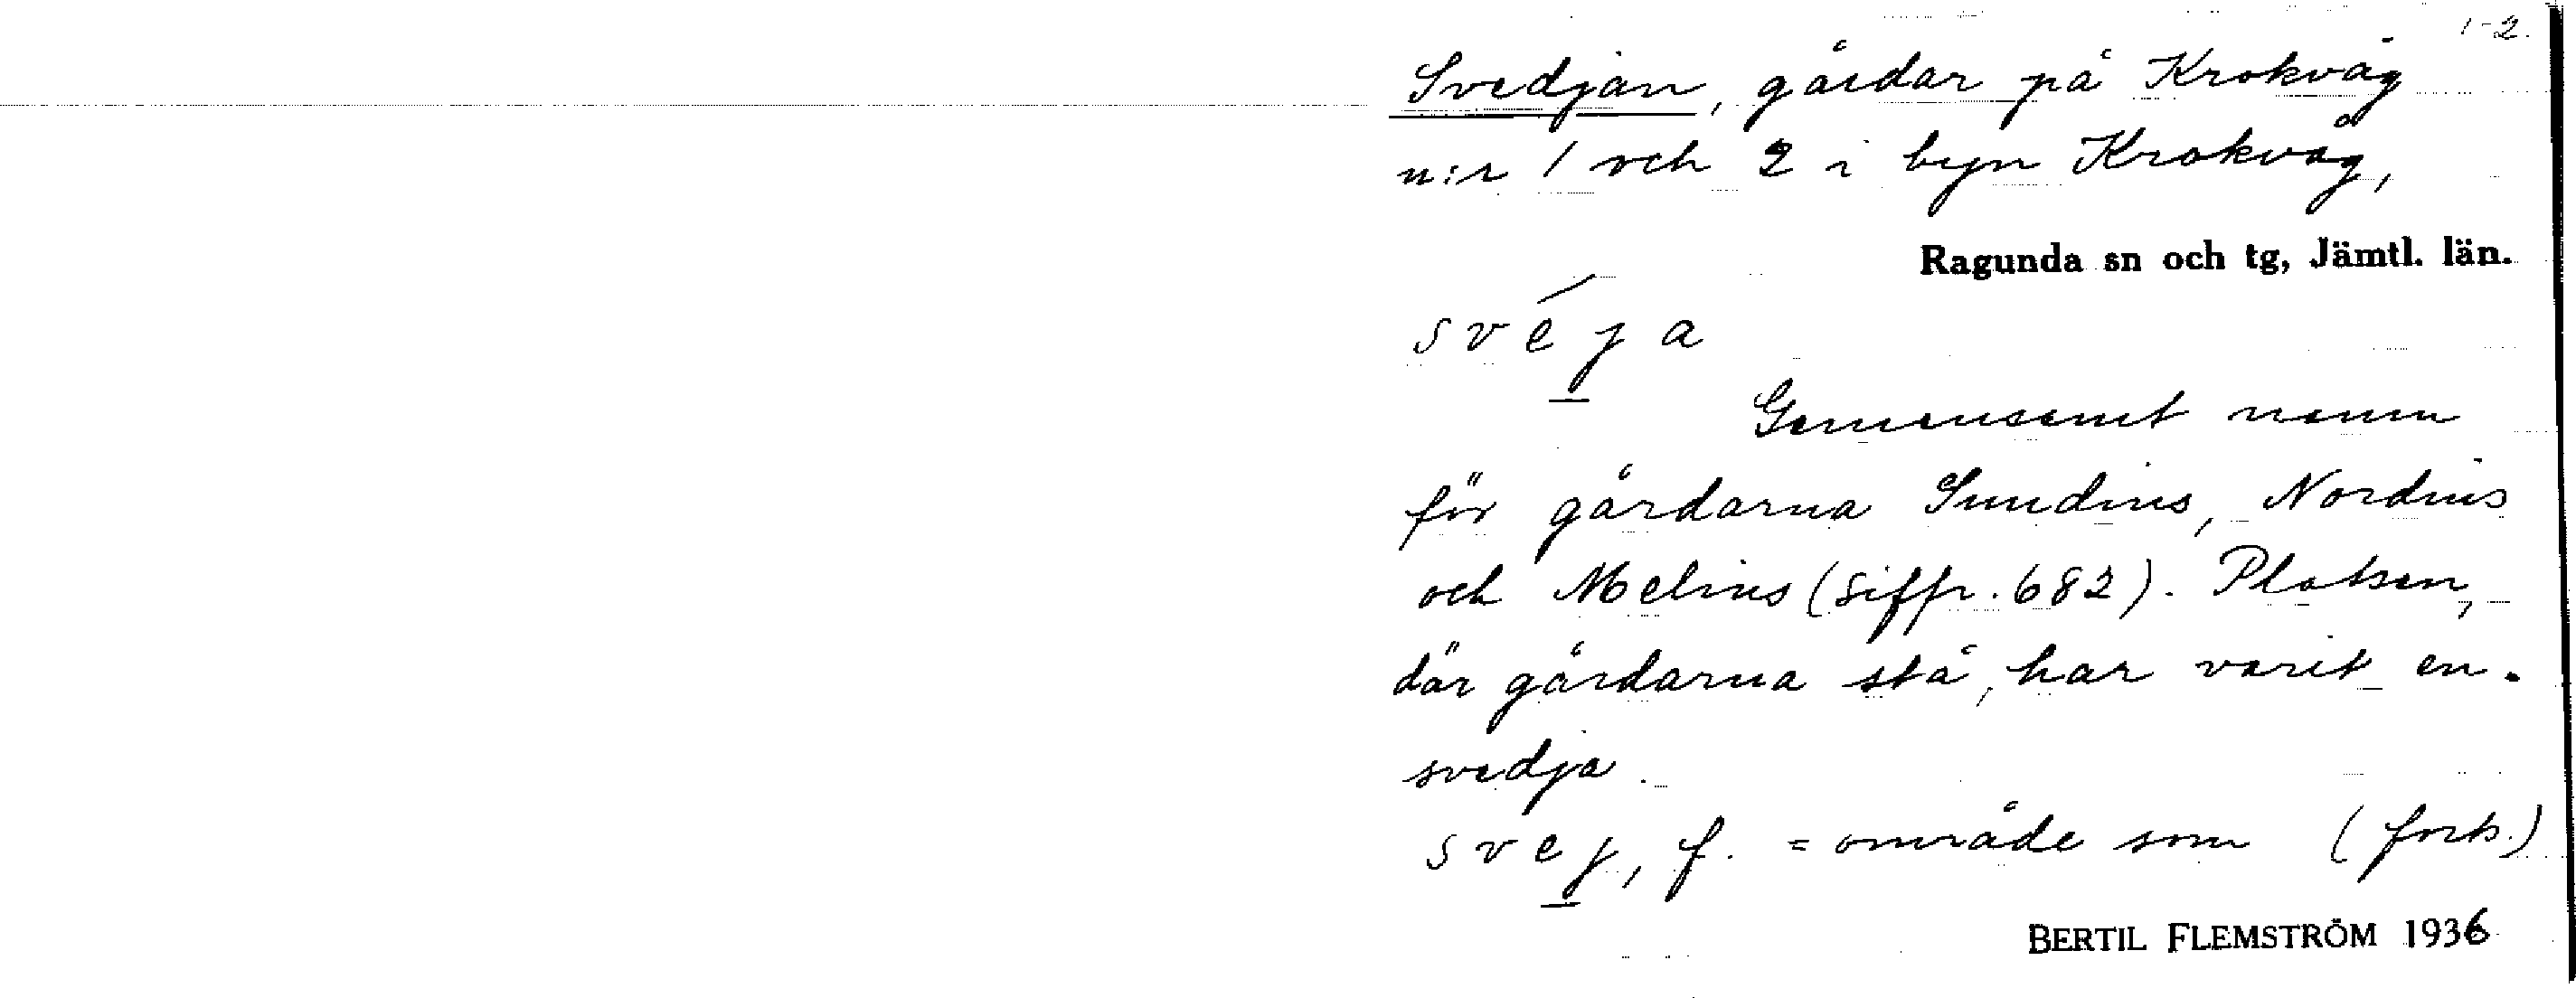 1-2.
Svedjan, gårdar på Krokvåg
n:r 1 och 2 i byn Krokvåg,
Ragunda sn och tg, Jämtl. län.
svéja
Gemensamt namn
för gårdarna Sundins, Nordins
och Melins (siffr. 682). Platsen,
där gårdarna stå, har varit en
svedja.
svej, f. = område som (forts.)
BERTIL FLEMSTRÖM 1936